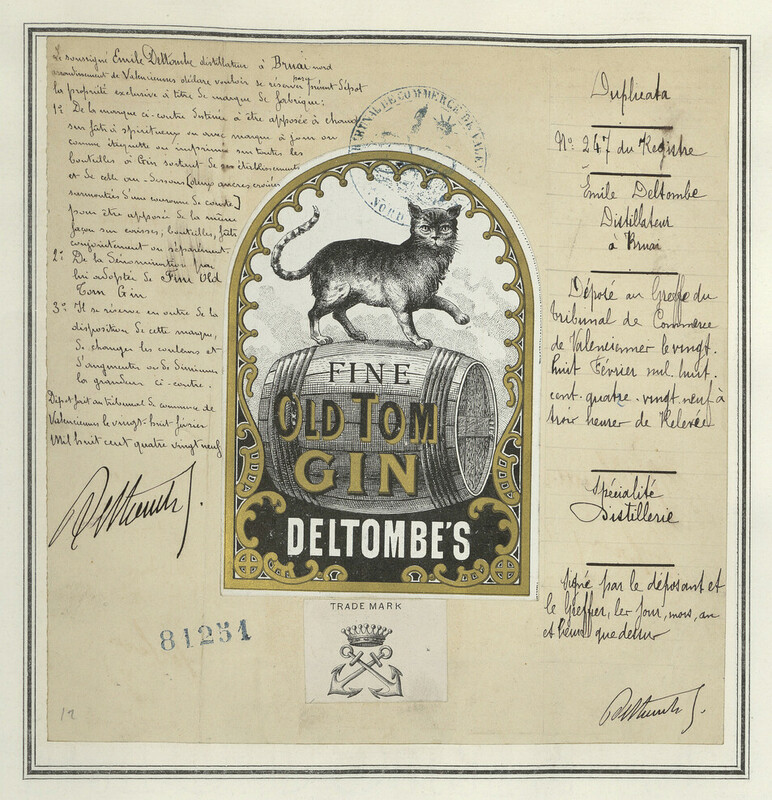 Le soussigné Emile Deltombe distillateur à Bruai nord
arrondissement de Valenciennes déclare vouloir se réserver par présent dépôt
la propriété exclusive à titre de marque de fabrique:
1º De la marque ci-contre à être apposée à chaud
sur fûts à spiritueux ou avec marque à jour ou
comme étiquette ou imprimée sur toutes les
bouteilles à Gin sortant de ses établissements
et de celle au-dessous (deux ancres croisées
surmontées d'une couronne de comte)
pour être apposée de la même
façon sur caisses, bouteilles, fûts
conjointement ou séparément.
2º De la dénomination par
lui adoptée de Fine Old
Tom Gin
3º Il se réserve en outre de la
disposition de cette marque,
de changer les couleurs et
d'augmenter ou de diminuer
la grandeur ci-contre.
Dépôt fait au tribunal de commerce de
Valenciennes le vingt-huit février
Mil huit cent quatre vingt neuf
TRIBUNAL DE COMMERCE DE
NORD
FINE
OLD TOM
GIN
DELTOMBE'S
TRADE MARK
81251
12
Duplicata
Nº 247 du Registre
Emile Deltombe
Distillateur
à Bruai
Déposé au Greffe du
tribunal de Commerce
de Valenciennes le vingt-
huit Février mil huit-
cent-quatre-vingt neuf à
trois heures de Relevée
Spécialité
Distillerie
Signé par le déposant et
le Greffier, les jour, mois, an
et heure que dessus